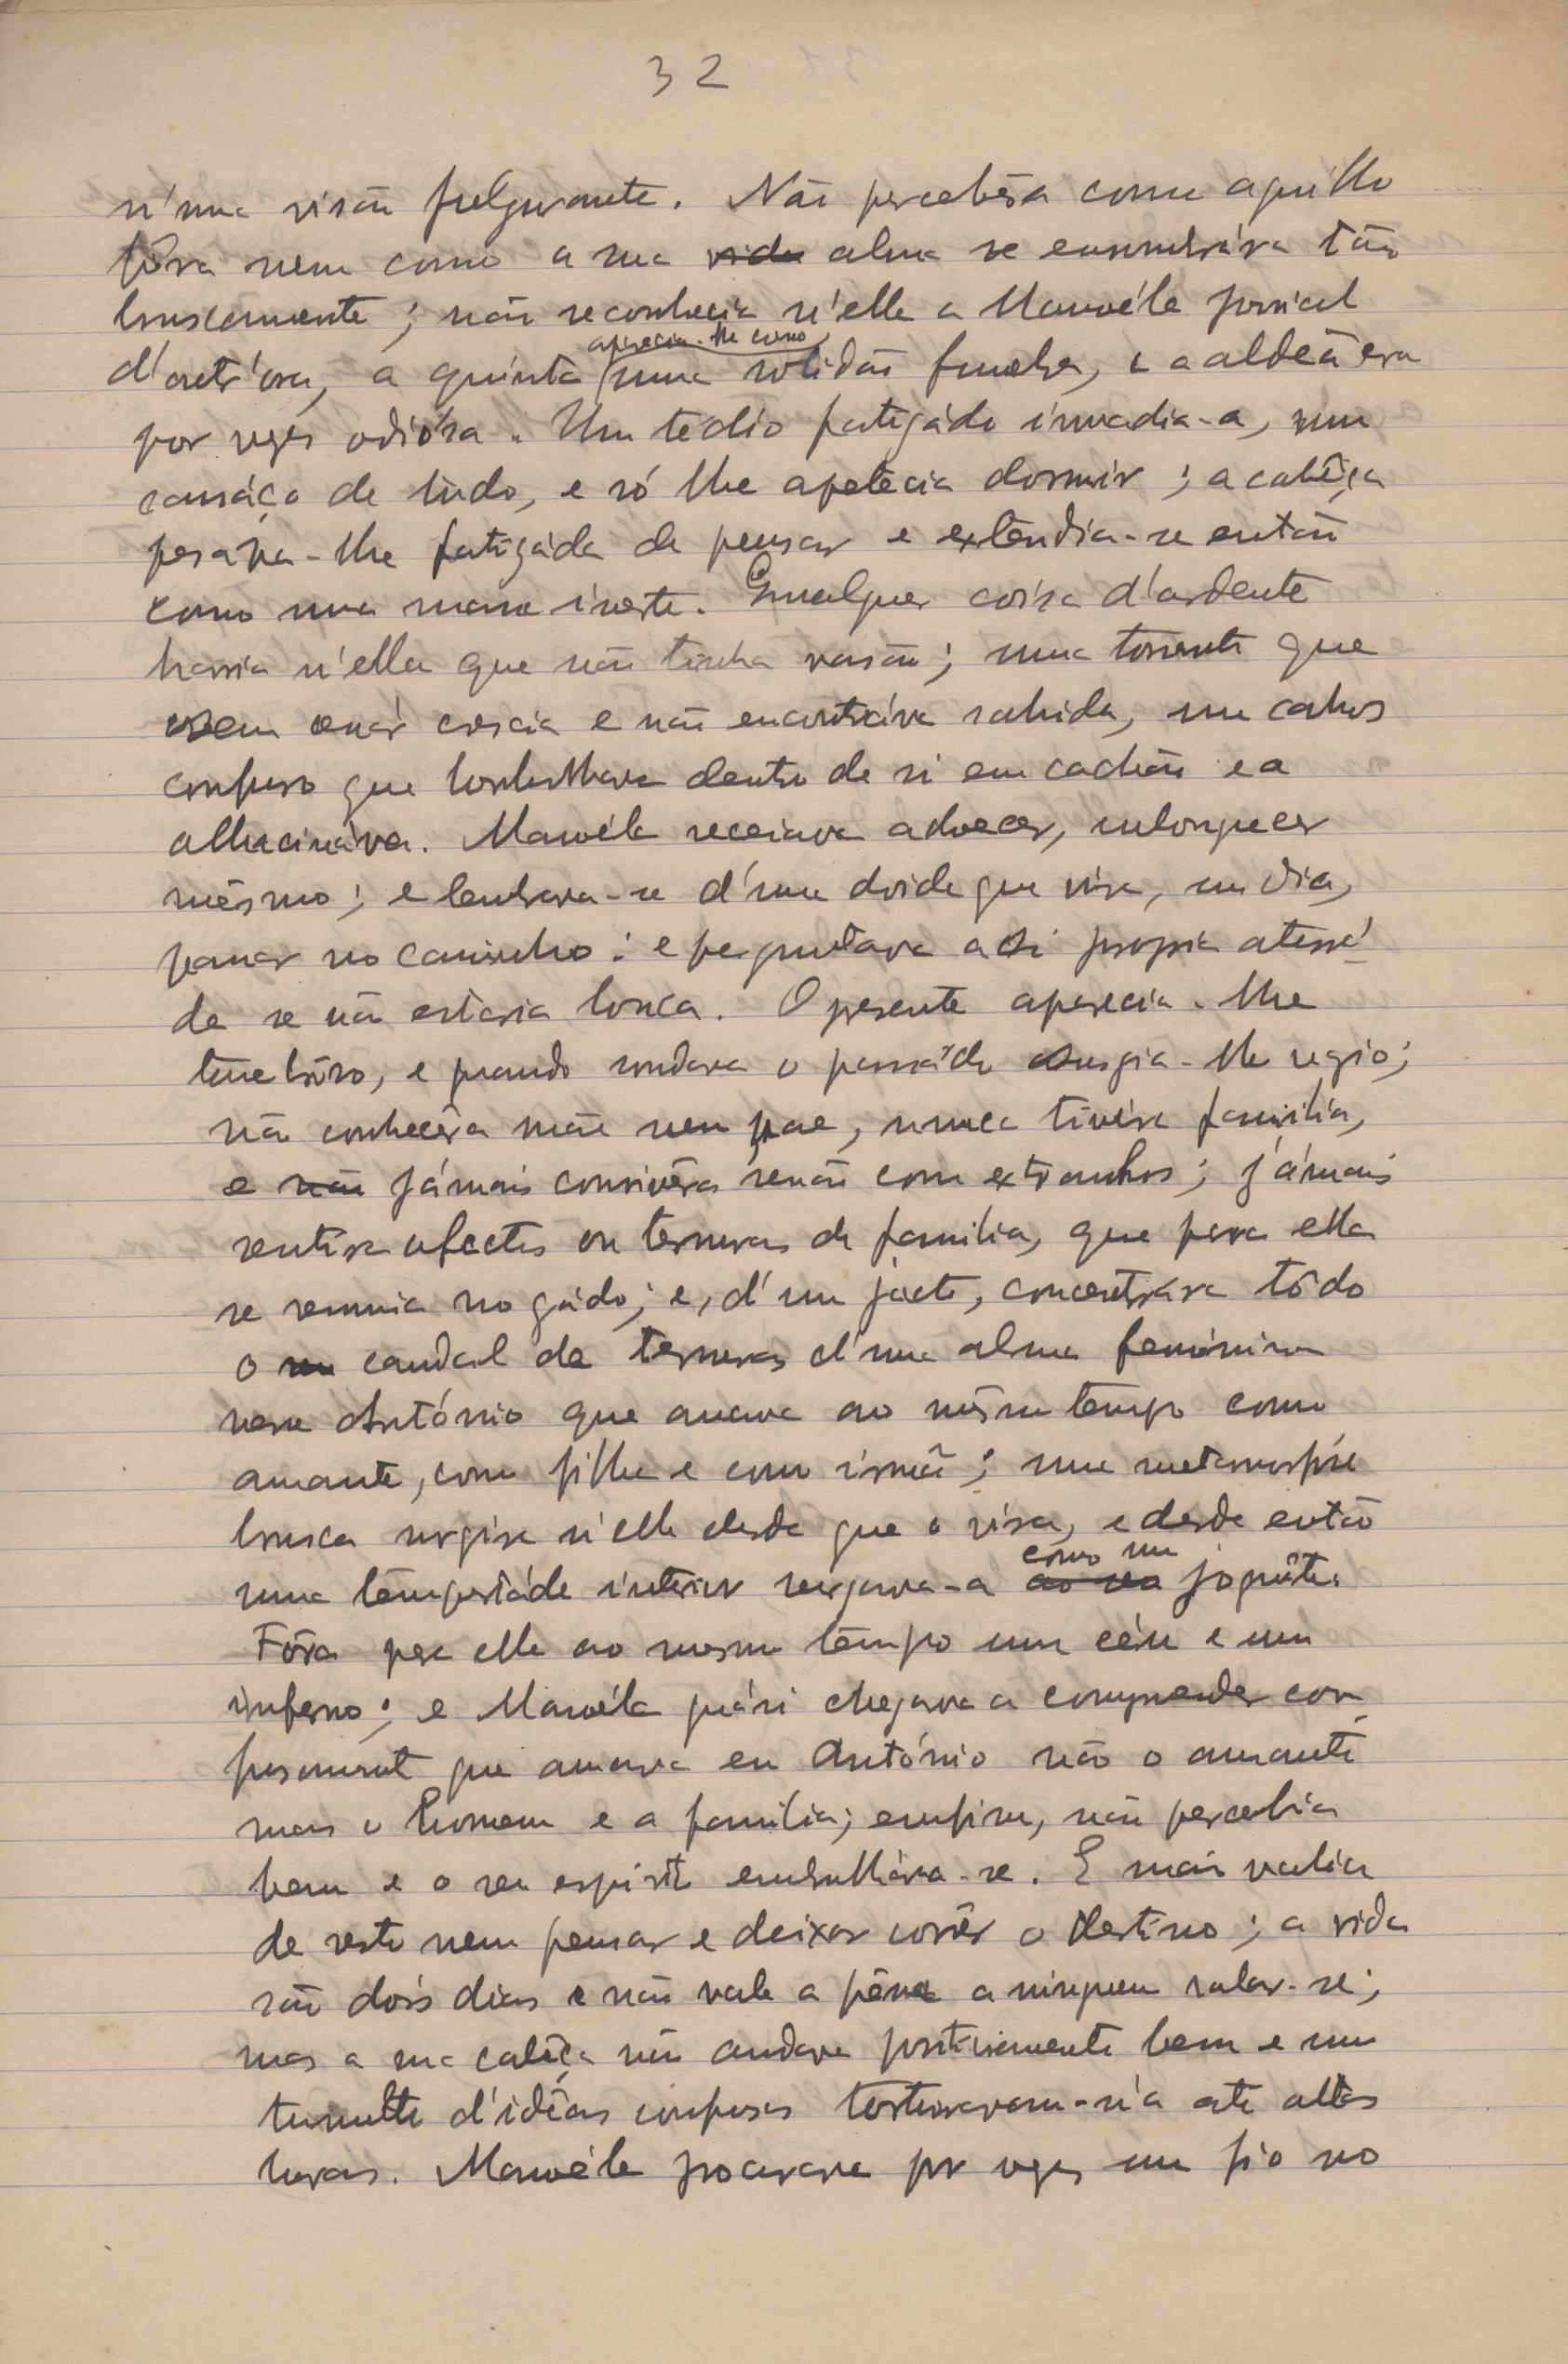 32
n'uma visão fulgurante. Não percebêra como aquillo
fôra nem como a sua vida alma se ensombrára tão
bruscamente; não reconhecia n'ella a Manoéla jovial
d'outr'ora, a quinta aparecia-lhe como uma solidão funebre, e a aldeã era
por vezes odiósa. Um tédio fatigádo invadia-a, um
cansáço de tudo, e só lhe apetecia dormir; a cabêça
pesava-lhe fatigáda de pensar e extendia-se então
como uma massa inerte. Qualquer coisa d'ardente
havia n'ella que não tinha vasão; uma torrente que
crescia e não encontráva sahida, um cahos
confuso que borbulhava dentro de si em cachão e a
allucináva. Manoéla receiava adoecer, enlouquecer
mêsmo; e lembrava-se d'uma doida que vira, um dia,
passar no caminho: e perguntava a si propria aterrá-
da se não estaria louca. O presente aparecia-lhe
tenebrôso, e quando sondava o passádo surgia-lhe negro;
não conhecêra mãe nem pae, nunca tivéra familia,
e não jámais convivêra senão com extranhos; jámais
sentira afectos ou ternuras de familia, que para ella
se resumia no gádo; e, d'um jacto, concentrára tôdo
o caudal de ternuras d'uma alma feminina
n'esse António que amava ao mêsmo tempo como
amante, como filha e como irmã; uma metamorfose
brusca surgira n'ella desde que o vira, e desde então
uma tempestáde interior vergava-a como um joguête.
Fôra para ella ao mesmo tempo um céu e um
inferno; e Manoéla quási chegava a comprender con-
fusament que amava em António não o amante
mas o homem e a familia; emfim, não percebia
bem e o seu espirito embrulhára-se. E mais valia
de resto nem pensar e deixar corrêr o destino; a vida
são dois dias e não vale a pêna a ninguem ralar-se;
mas a sua cabêça não andava positivamente bem e um
tumulto d'idêas confusas torturavam-n'a até altas
horas. Manoéla procurava por vezes um fio no